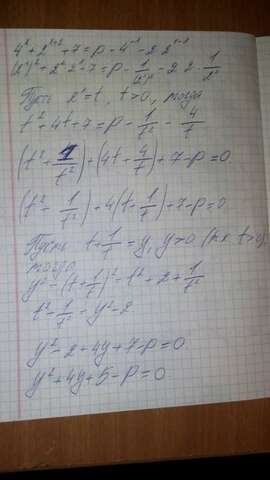 4ˣ+2ˣ⁺²+7=p-4⁻ˣ-2·2¹⁻ˣ
(2ˣ)²+2ˣ·2²+7=p-1/(2ˣ)²-2·2·1/2ˣ
Пусть 2ˣ=t, t>0, тогда
t²+4t+7=p-1/t²-4/t
(t²+1/t²)+(4t+4/t)+7-p=0
(t²+1/t²)+4(t+1/t)+7-p=0
Пусть t+1/t=y, y>0 (т.к t>0),
тогда
y²=(t+1/t)²=t²+2+1/t²
t²+1/t²=y²-2
y²-2+4y+7-p=0
y²+4y+5-p=0